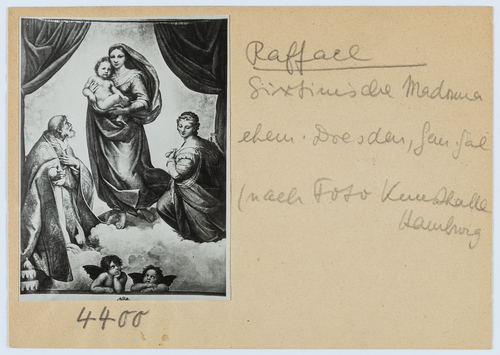 Raffael
Sixtinische Madonna
ehem. Dresden, Gem. Gal
(nach Foto Kunsthalle
Hamburg
4400